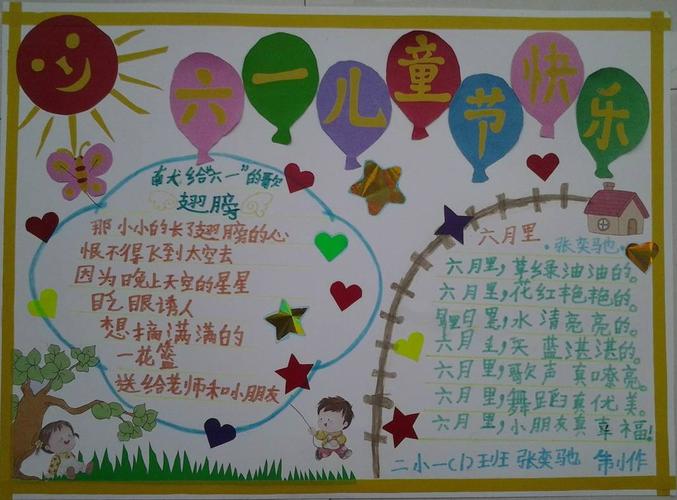 六一儿童节快乐
献给“六一”的歌
翅膀
那小小的长了翅膀的心
恨不得飞到太空去
因为晚上天空的星星
眨眼诱人
想摘满满的
一花篮
送给老师和小朋友
六月里
张奕驰
六月里,草绿油油的。
六月里,花红艳艳的。
六月里,水清亮亮的。
六月里,天蓝湛湛的。
六月里,歌声真嘹亮。
六月里,舞蹈真优美。
六月里,小朋友真幸福!
二小一(1)班 张奕驰 制作